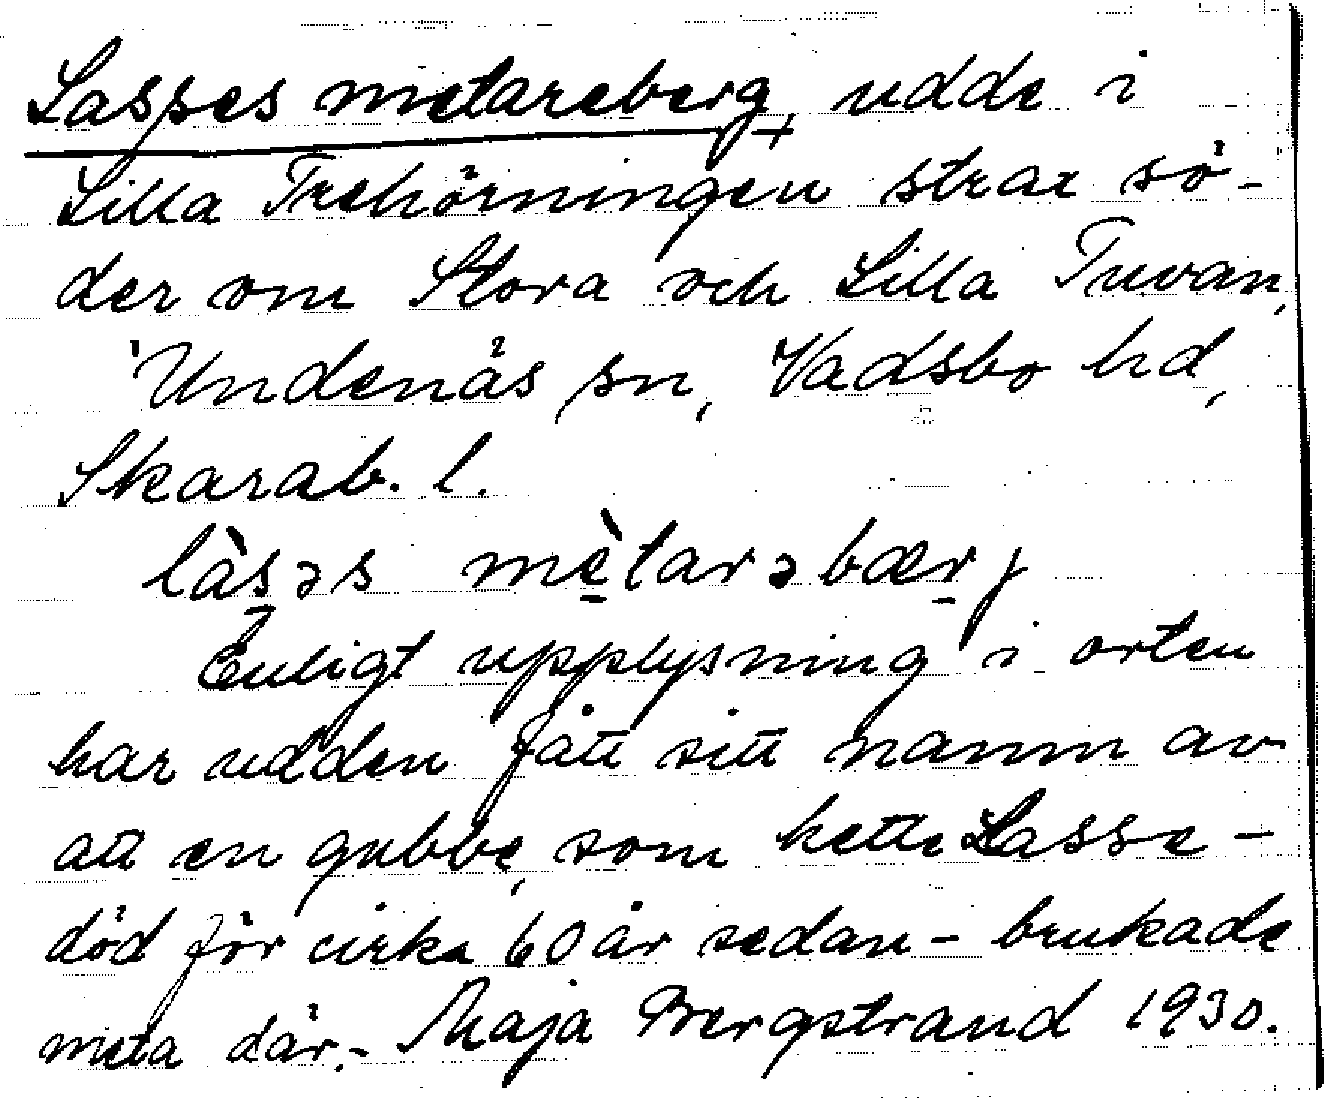 Lasses metareberg, udde i
Lilla Trehörningen strax sö-
der om Stora och Lilla Tuvan,
Undenäs sn, Vadsbo hd,
Skarab. l.
làsəs mètarəbærj
Enligt upplysning i orten
har udden fått sitt namn av
att en gubbe, som hette Lasse -
död för cirka 60 år sedan - brukade
meta där. - Maja Bergstrand 1930.